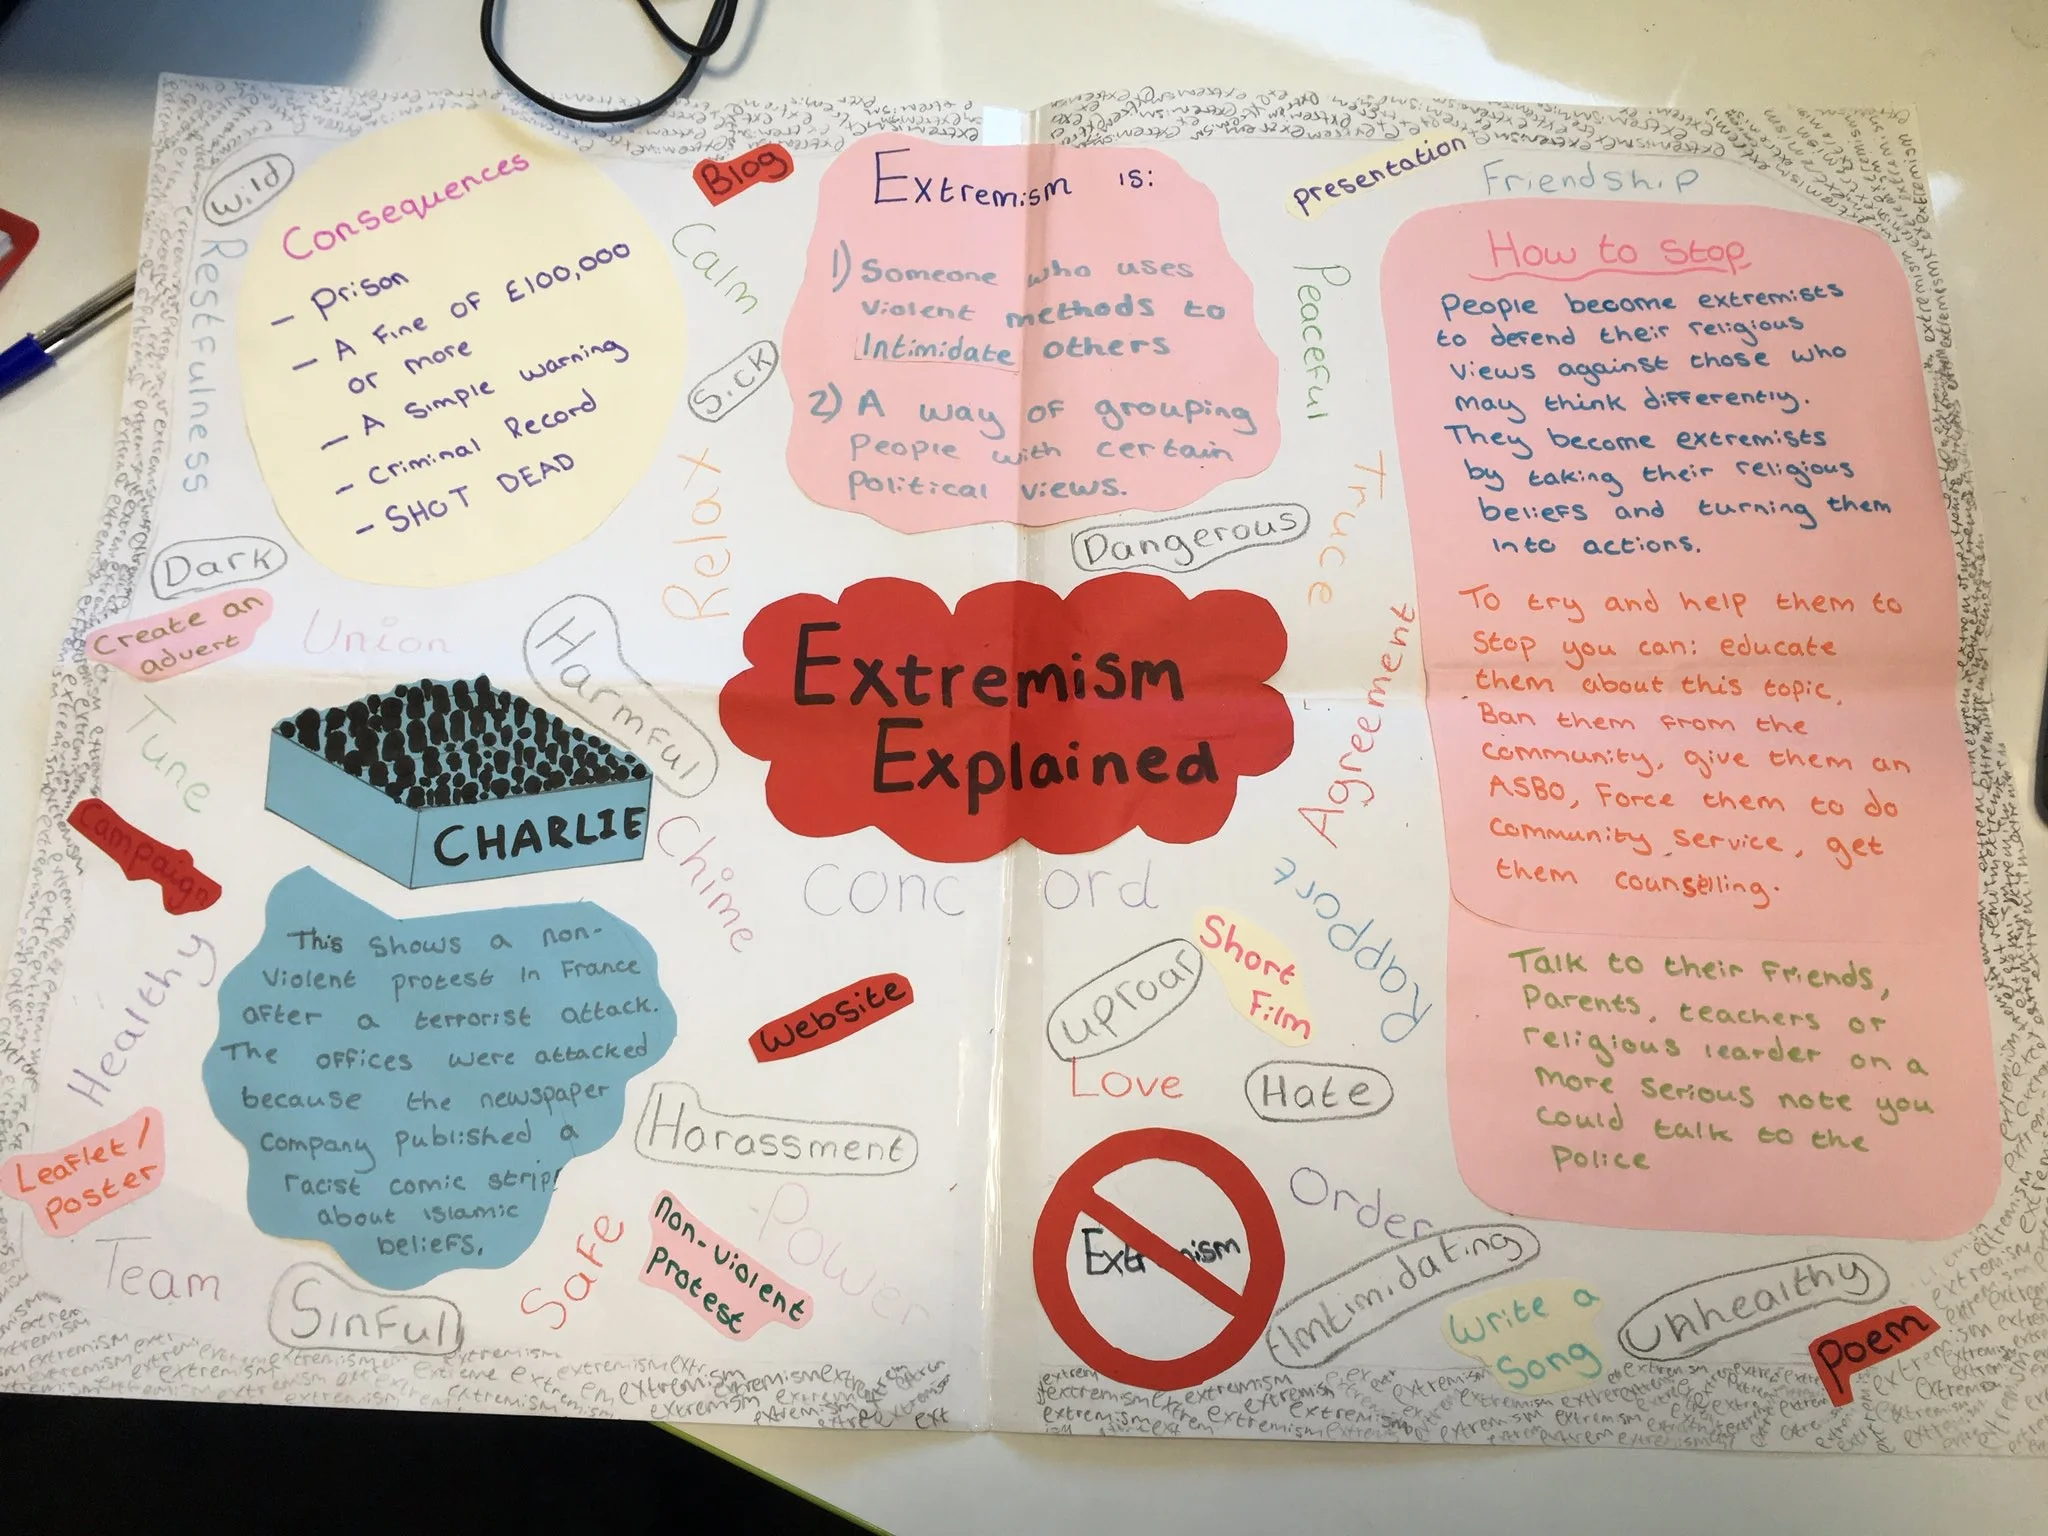 Wild
Restfulness
Consequences
- Prison
- A Fine of £100,000
or more
- A simple warning
- Criminal Record
- SHOT DEAD
Blog
Calm
Sick
Relax
Extremism is:
1) Someone who uses
violent methods to
Intimidate others
2) A way of grouping
people with certain
political views.
presentation
Friendship
Peaceful
Truce
Dangerous
How to Stop
People become extremists
to defend their religious
views against those who
may think differently.
They become extremists
by taking their religious
beliefs and turning them
into actions.
To try and help them to
stop you can: educate
them about this topic,
Ban them from the
community, give them an
ASBO, Force them to do
community service, get
them counselling.
Talk to their friends,
Parents, teachers or
religious learder on a
more serious note you
could talk to the
Police
Dark
Create an
advert
Union
Harmful
Tune
Extremism
Explained
Agreement
CHARLIE
Campaign
Chime
Concord
Rapport
Healthy
This shows a non-
violent protest in France
after a terrorist attack.
The offices were attacked
because the newspaper
company published a
racist comic strip
about islamic
beliefs.
Website
Uproar
Short
Film
Love
Hate
Harassment
Leaflet /
poster
Team
Sinful
Safe
non-violent
Protest
Power
Extremism
Order
Intimidating
Write a
Song
unhealthy
Poem